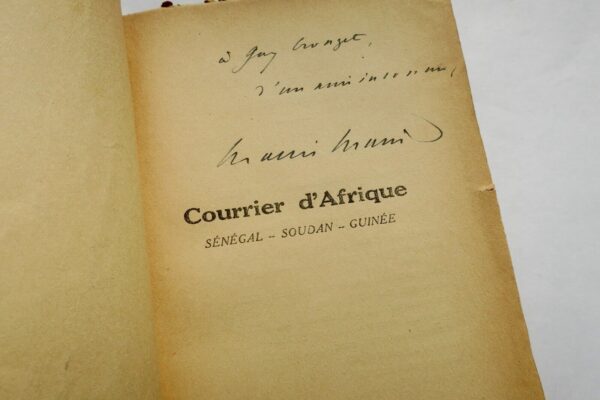 à Guy Crouzet,
d'un ami inconnu,
Courrier d'Afrique
SÉNÉGAL -- SOUDAN -- GUINÉE